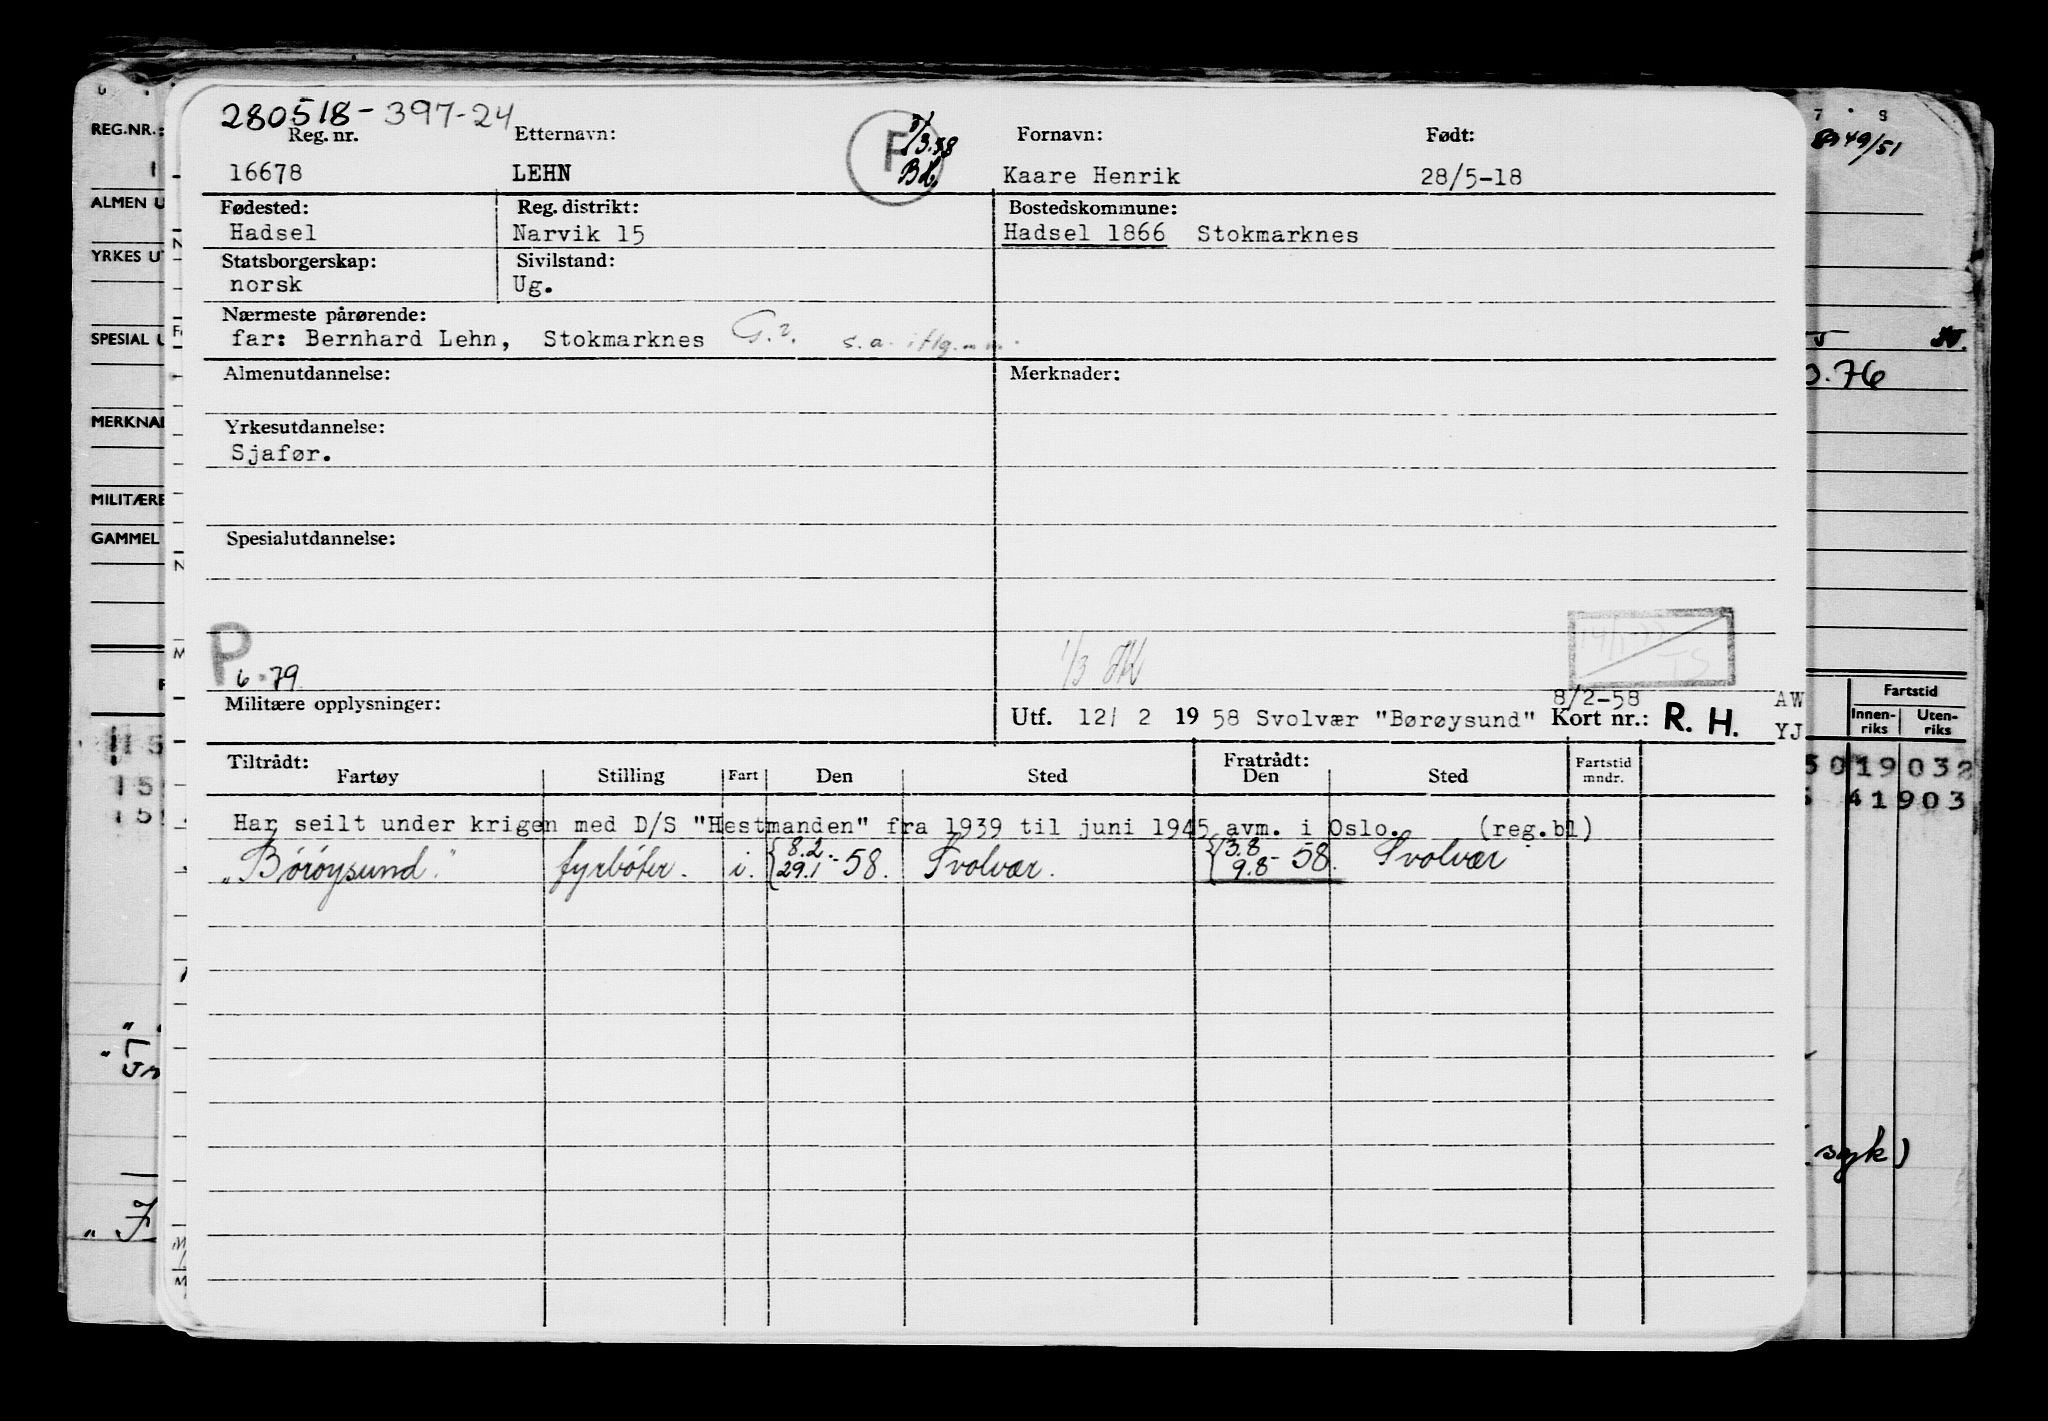 280518-397-24
Reg. nr. Etternavn: Fornavn: Født:
16678 LEHN F 3.58 Bd. Kaare Henrik 28/5-18
Fødested: Reg. distrikt: Bostedskommune:
Hadsel Narvik 15 Hadsel 1866 Stokmarknes
Statsborgerskap: Sivilstand:
norsk Ug.
Nærmeste pårørende:
far: Bernhard Lehn, Stokmarknes G.2. s.a.
Almenutdannelse: Merknader:
Yrkesutdannelse:
Sjafør.
Spesialutdannelse:
P 6.79 1/3 TS
Militære opplysninger:
8/2-58 AW
Utf. 12/ 2 19 58 Svolvær "Børøysund" Kort nr.: R. H. YJ
Tiltrådt: Fratrådt:
Fartøy Stilling Fart Den Sted Den Sted Fartstid mndr.
Har seilt under krigen med D/S "Hestmanden" fra 1939 til juni 1945 avm. i Oslo. (reg.bl)
„Børøysund." fyrbøter. i. {8.2 29.1 -58. Svolvær. {3.8 9.8 -58. Svolvær
REG.NR.:
ALMEN U
YRKES UT
SPESIAL U
MERKNAD
MILITÆRE
GAMMEL
7 8
49/51
0.76
Fartstid
Innen-riks Uten-riks
50 19 032
41 903
syk)